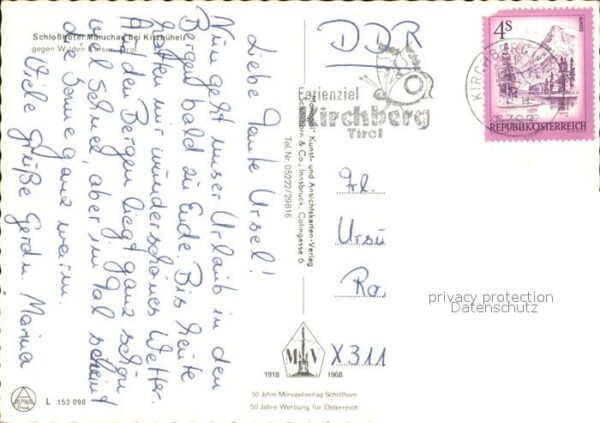 Schloßhotel Münichau bei Kitzbühel
gegen Wilden Kaiser, Tirol
Liebe Tante Ursel!
Nun geht unser Urlaub in den
Bergen bald zu Ende. Bis heute
hatten wir wunderschönes Wetter.
Auf den Bergen liegt ganz schön
viel Schnee, aber im Tal scheint
die Sonne ganz warm.
Viele Grüße Gerd u. Marina
"Monopol" Kunst- und Ansichtskarten-Verlag
Schöllhorn & Co., Innsbruck, Colingasse 6
Tel. Nr. 05222/29816
DDR
Ferienziel
Kirchberg
Tirol
KIRCHBERG
4S
REPUBLIK ÖSTERREICH
Frl.
Ursu
Ro.
X311
privacy protection
Datenschutz
M V
1918 1968
50 Jahre Monopolverlag Schöllhorn
50 Jahre Werbung für Österreich
L 152 098